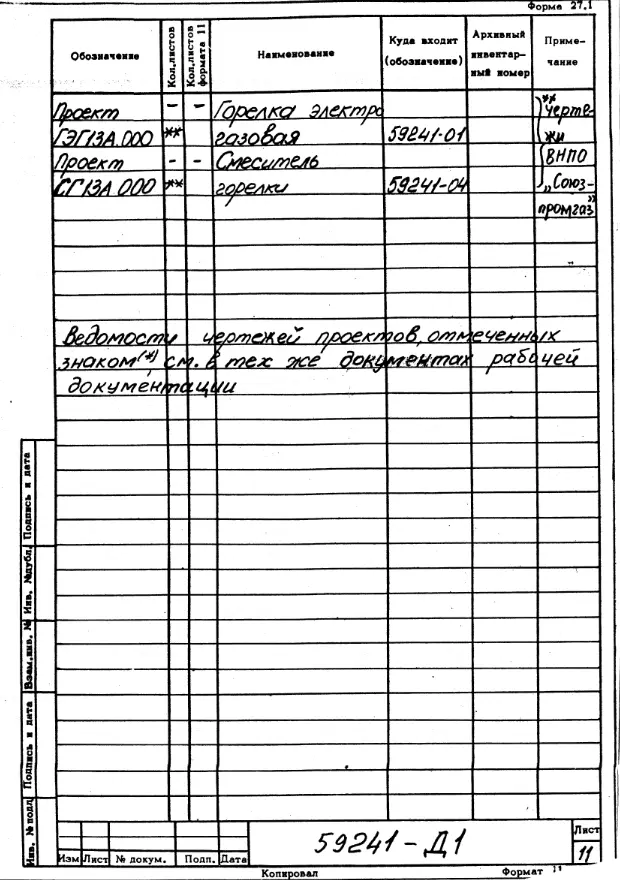 Форма 27.1
Обозначение
Кол.листов
Кол.листов формата 11
Наименование
Куда входит (обозначение)
Архивный инвентар-ный номер
Приме-чание
Проект - - Горелка электро **Черте-
ГЭГ13А.000 ** газовая 59241-01 жи
Проект - - Смеситель ВНПО
СГ13А 000 ** горелки 59241-04 „Союз-
промгаз"
Ведомости чертежей проектов, отмеченных
знаком (*), см. в тех же документах рабочей
документации
Подпись и дата
Инв. №дубл.
Взам.инв. №
Подпись и дата
Инв. № подл
Изм Лист № докум. Подп. Дата
59241-Д1
Лист
11
Копировал
Формат 11